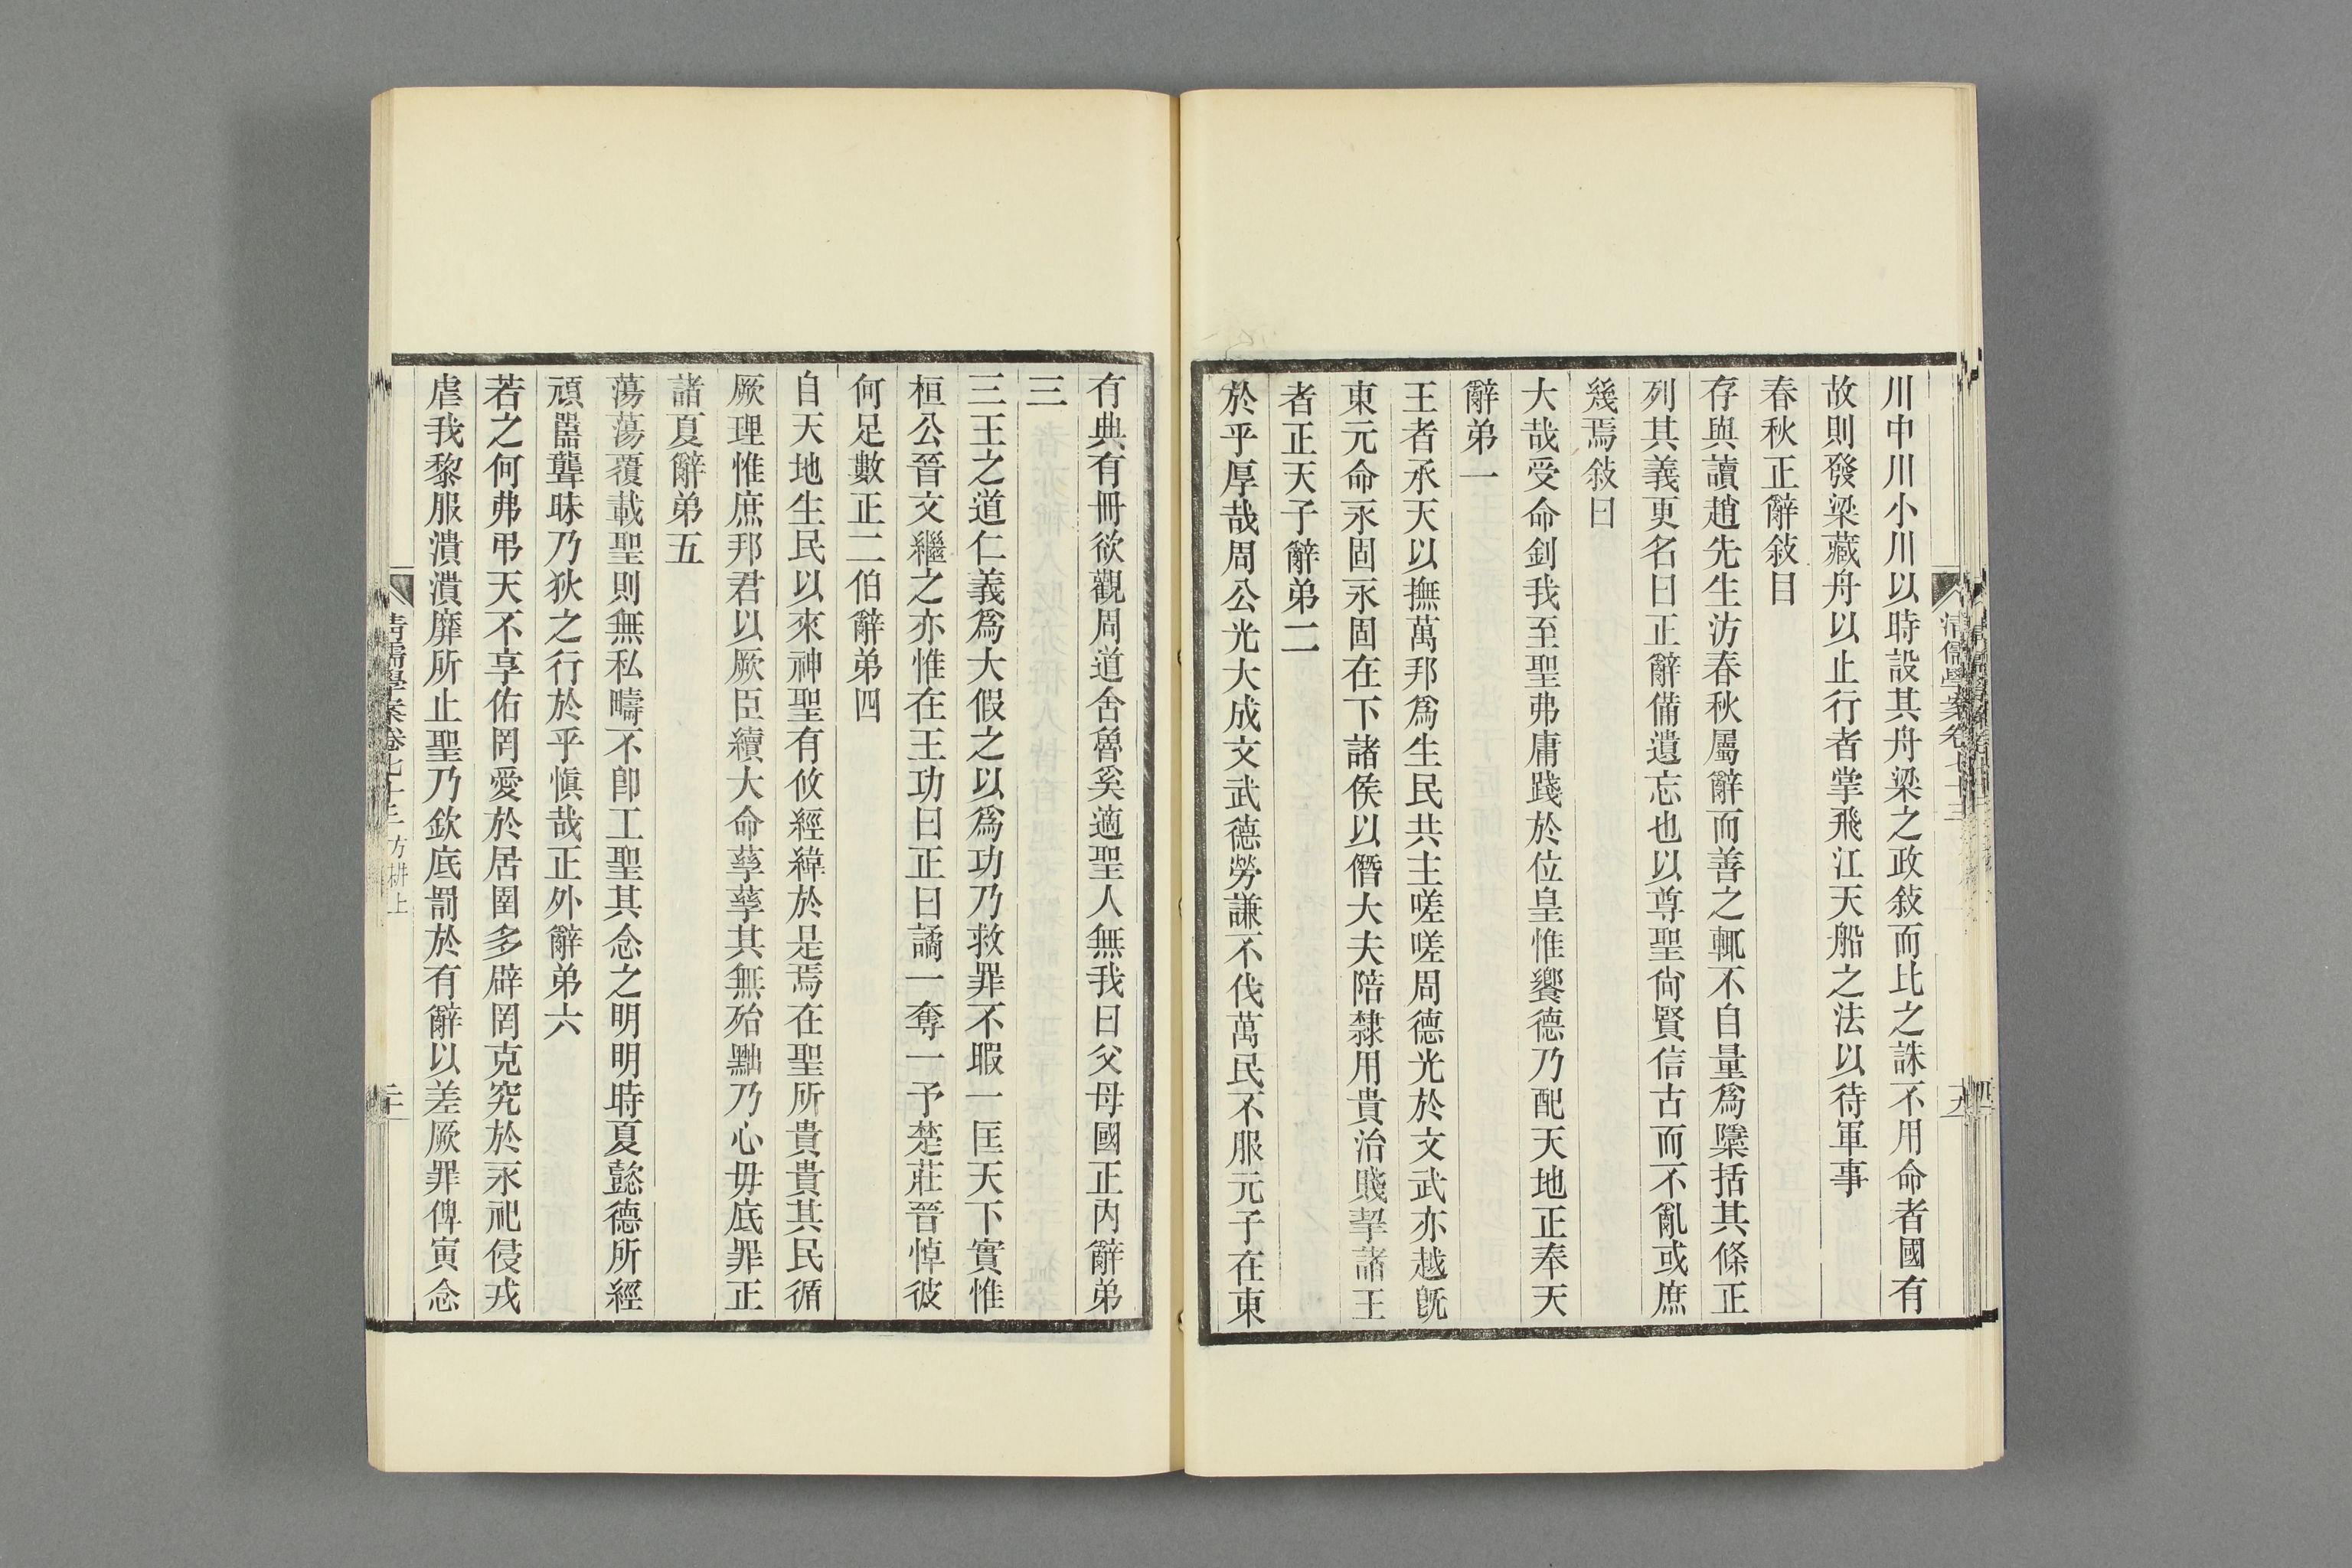 川中川小川以時設其舟梁之政敍而比之誅不用命者國有
故則發梁藏舟以止行者掌飛江天船之法以待軍事
春秋正辭敍目
存與讀趙先生汸春秋屬辭而善之輒不自量爲櫽括其條正
列其義更名曰正辭備遺忘也以尊聖尙賢信古而不亂或庶
幾焉敍曰
大哉受命釗我至聖弗庸踐於位皇惟饗德乃配天地正奉天
辭弟一
王者承天以撫萬邦爲生民共主嗟嗟周德光於文武亦越旣
東元命永固永固在下諸侯以僭大夫陪隸用貴治賤挈諸王
者正天子辭弟二
於乎厚哉周公光大成文武德勞謙不伐萬民不服元子在東
有典有冊欲觀周道舍魯奚適聖人無我曰父母國正內辭弟
三
三王之道仁義爲大假之以爲功乃救罪不暇一匡天下實惟
桓公晉文繼之亦惟在王功曰正曰譎一奪一予楚莊晉悼彼
何足數正二伯辭弟四
自天地生民以來神聖有攸經緯於是焉在聖所貴貴其民循
厥理惟庶邦君以厥臣續大命孽孽其無殆黜乃心毋底罪正
諸夏辭弟五
蕩蕩覆載聖則無私疇不卽工聖其念之明明時夏懿德所經
頑嚚聾昧乃狄之行於乎愼哉正外辭弟六
若之何弗弔天不享佑罔愛於居圉多辟罔克究於永祀侵戎
虐我黎服潰潰靡所止聖乃欽底罰於有辭以差厥罪俾寅念
清儒學案卷七十三
十九
清儒學案卷七十三 方耕上
二十